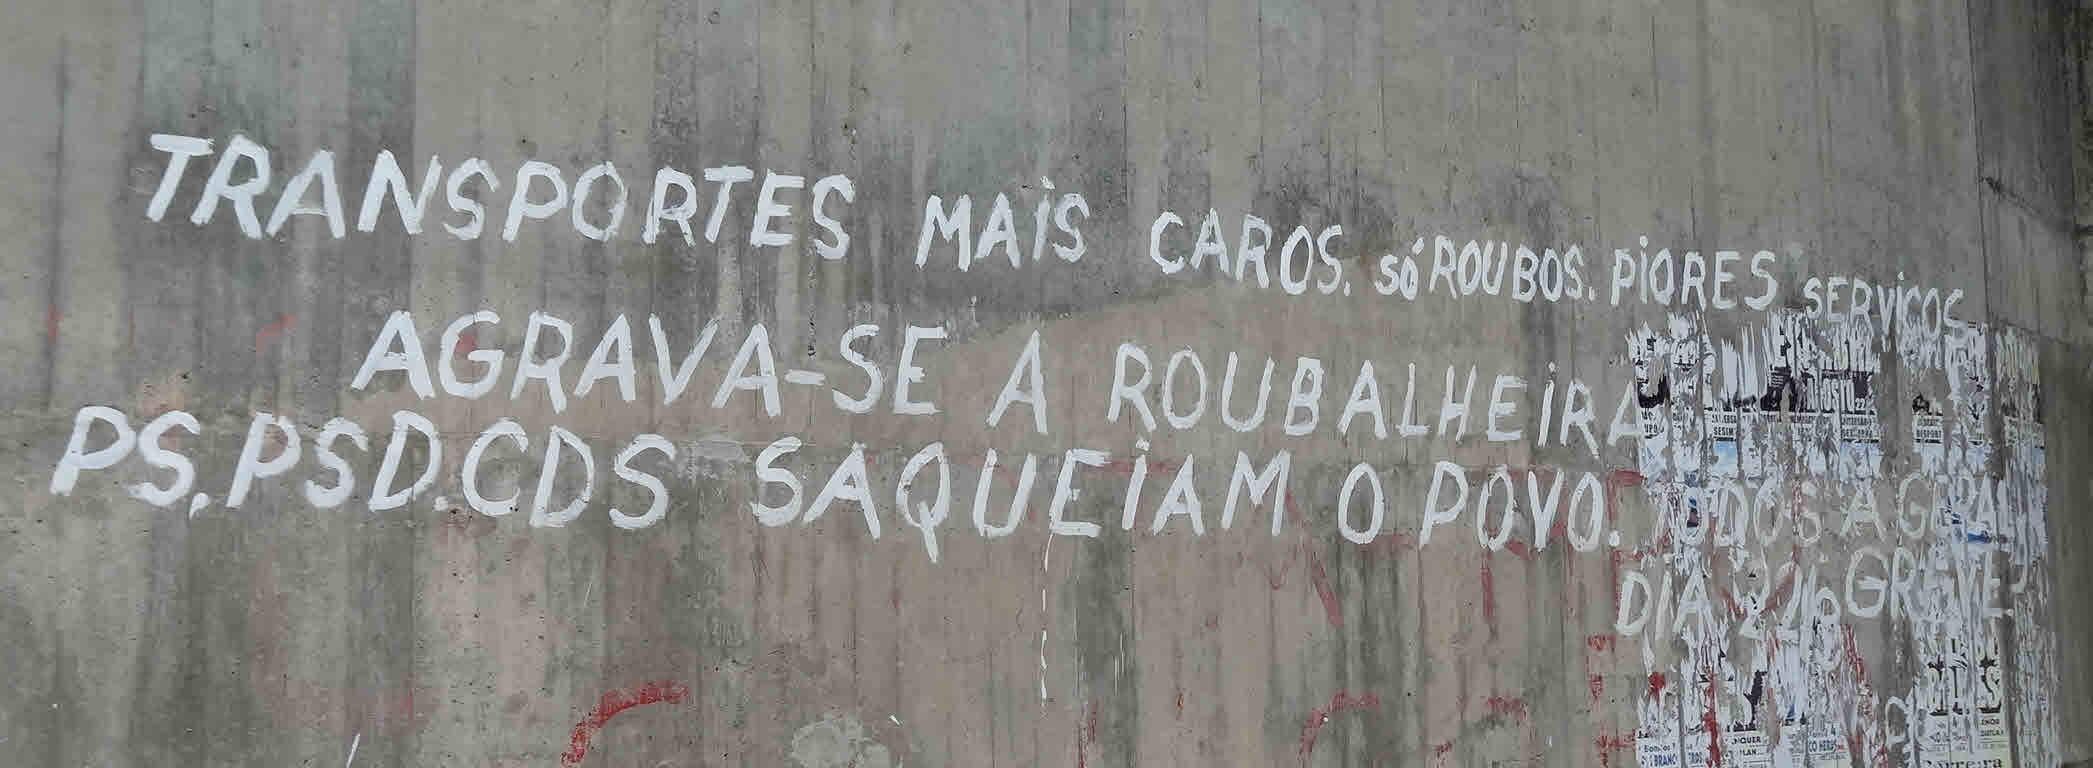 TRANSPORTES MAiS CAROS. Só ROUBOS. PiORES SERViÇOS
AGRAVA-SE A ROUBALHEiRA
PS, PSD. CDS SAQUEiAM O POVO. TODOS A GERAL
DiA GREVE